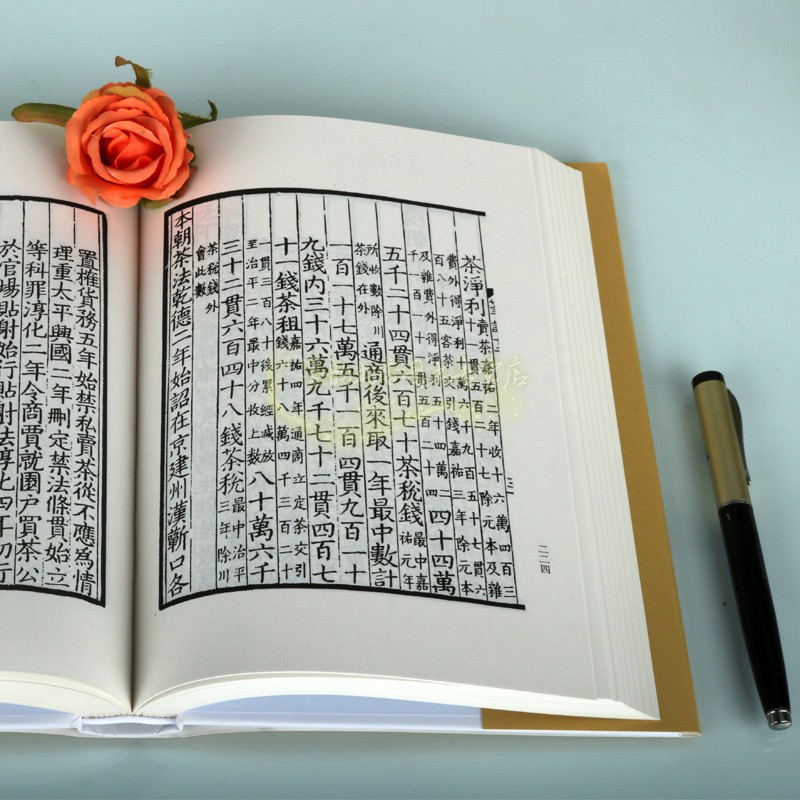 茶淨利賣茶嘉祐二年收十六萬四百三
十一貫五百二十七除元本及雜
費外得淨利十萬六千九百五十七貫六
百八十五客茶交引錢嘉祐三年除元本
及雜費外得淨利五十四萬二
千一百一十一貫五百二十四
四十四萬
五千二十四貫六百七十茶稅錢最中嘉
祐元年
所收數除川
茶錢在外
通商後來取一年最中數計
一百一十七萬五千一百四貫九百一十
九錢内三十六萬九千七十二貫四百七
十一錢茶租嘉祐四年通商立定茶交引
錢六十八萬四千三百二十
一貫三百八十後累經減放
至治平二年最中分收上數
八十萬六千
三十二貫六百四十八錢茶稅最中治平
三年除川
茶稅錢外
會此數
本朝茶法乾德二年始詔在京建州漢蘄口各
置榷貨務五年始禁私賣茶從不應為情
理重太平興國二年刪定禁法條貫始立
等科罪淳化二年令商賈就園户買茶公
於官場貼射始行貼射法淳化四年初行
二二四